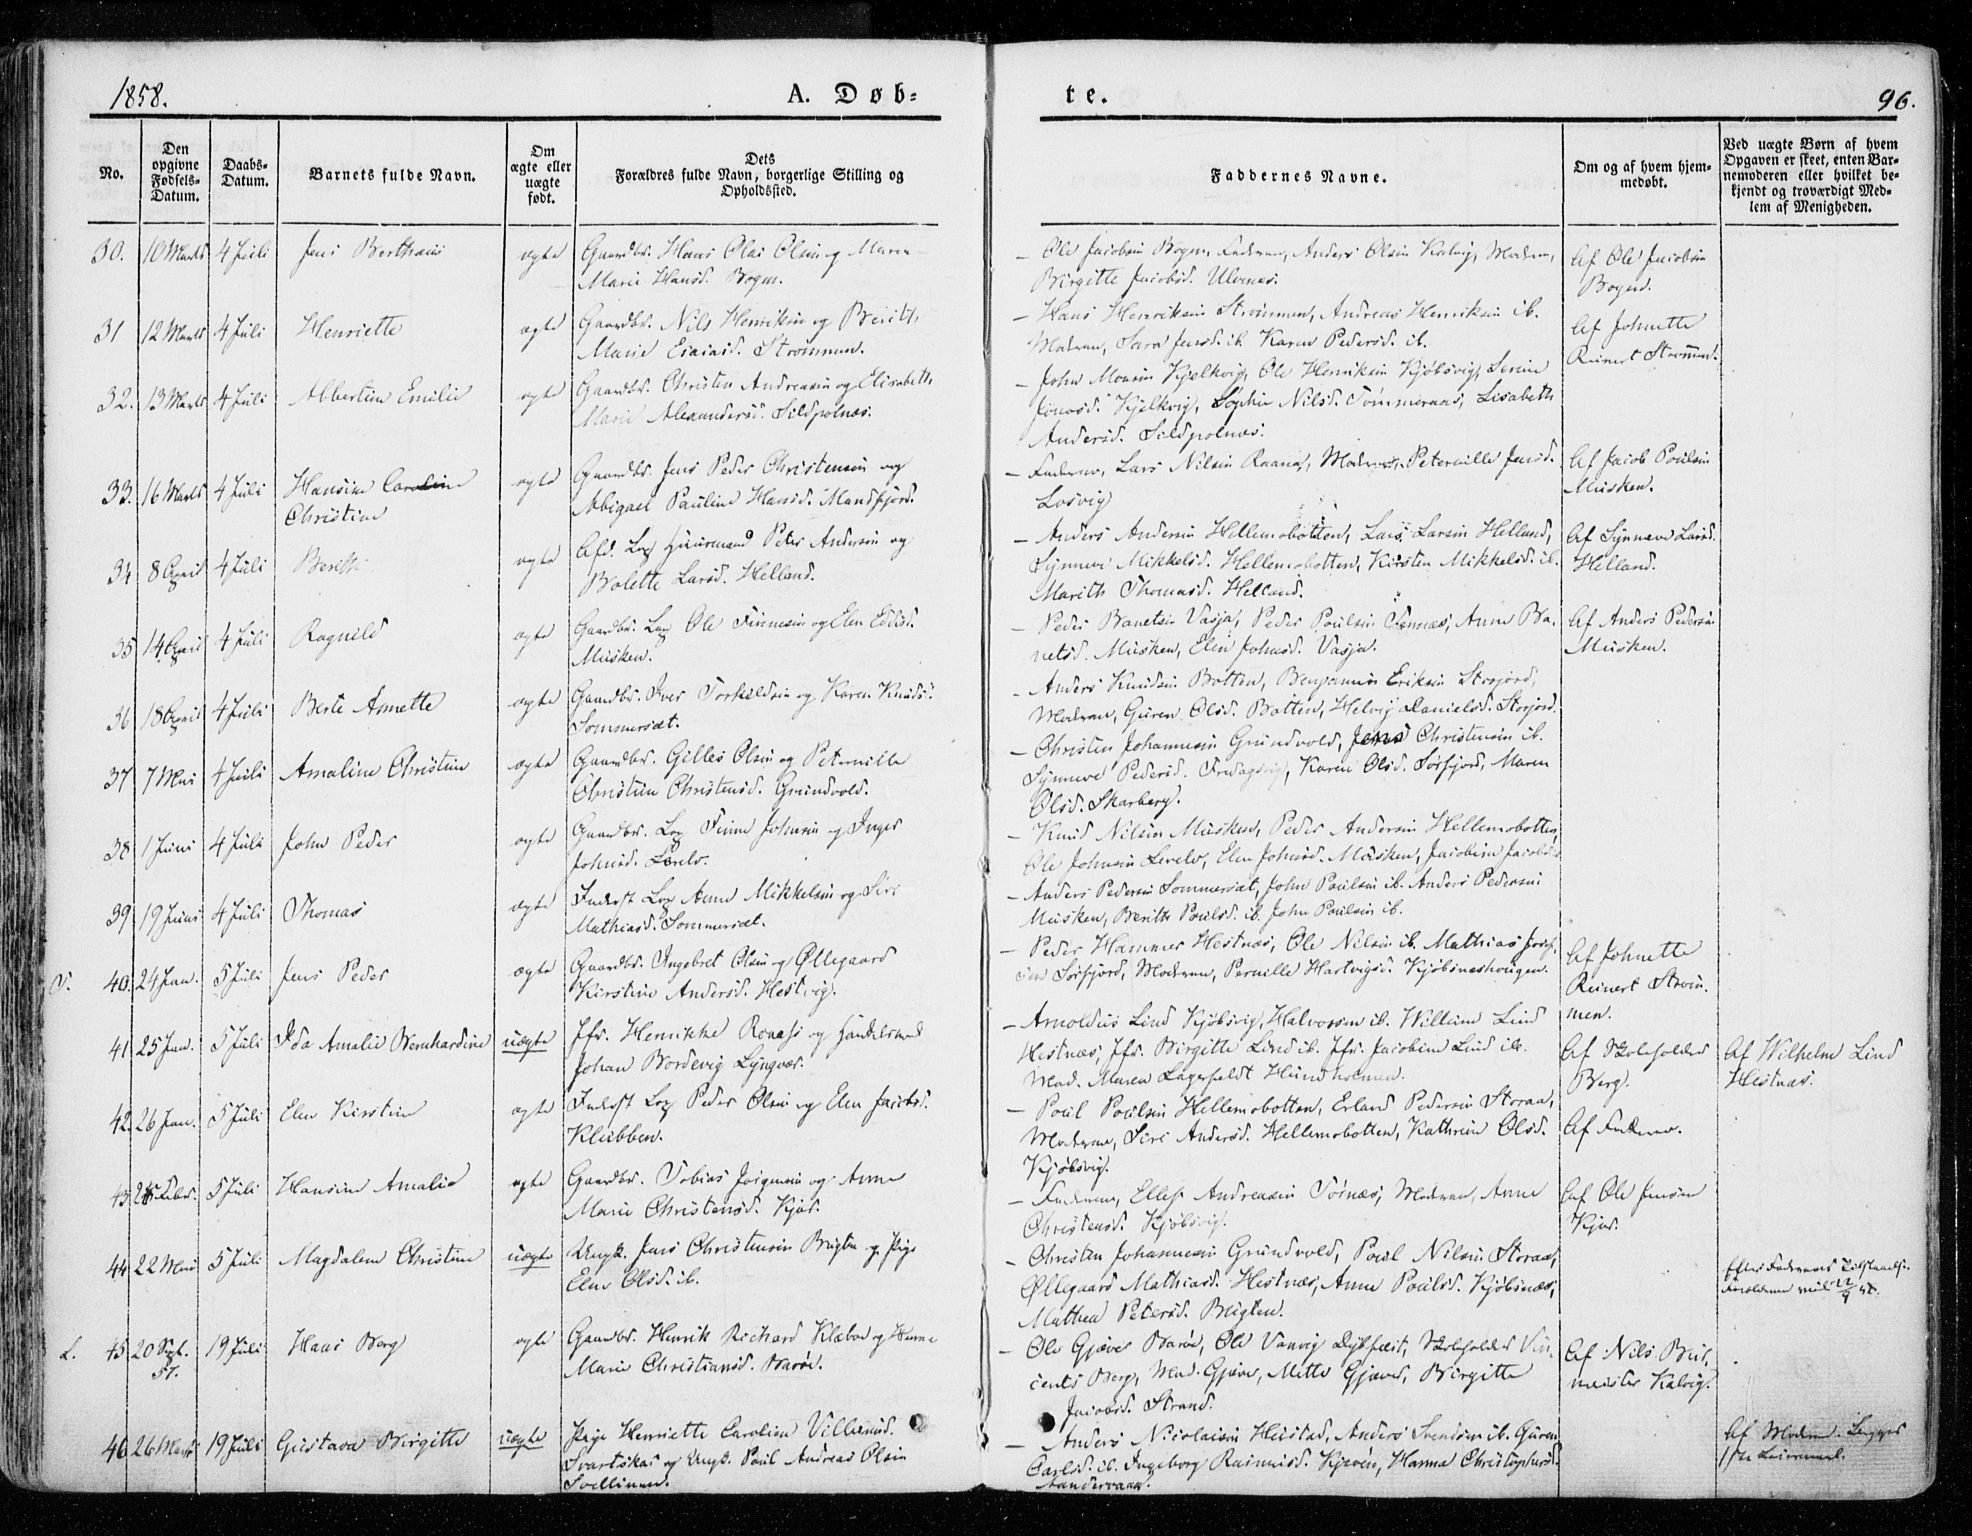 1858.
A. Døb=
te.
96.
No.
Den opgivne Fødsels-Datum.
Daabs-Datum.
Barnets fulde Navn.
Om ægte eller uægte født.
Dets Forældres fulde Navn, borgerlige Stilling og Opholdssted.
Faddernes Navne.
Om og af hvem hjemmedøbt.
Ved uægte Børn af hvem
Opgaven er skeet, enten Bar-
nemoderen eller hvilket be-
kjendt og troværdigt Med-
lem af Menigheden.
30. 10 Marts 4 Juli Jens Bertheus ægte Gaardbr. Hans Olai Olsen og Maren
Marie Hansd. Bogen.
– Ole Jacobsen Bogen, Faderen, Anders Olsen Kalvig, Moderen,
Birgitte Jacobsd. Ulvenes.
Af Ole Jacobsen
Bogen.
31 12 Marts 4 Juli Henriette ægte Gaardbr. Nils Henriksen og Berith
Marie Esaiasd. Strømmen.
– Hans Henriksen Strømmen, Andreas Henriksen ib.
Moderen, Sara Jensd. ib. Karen Pedersd. ib.
Af Johnette
Reinert Strømmen.
32. 13 Marts 4 Juli Albertine Emilie ægte Gaardbr. Christen Andreasen og Elisabeth
Marie Alexandersd. Sildpolnes.
– John Monsen Kjelkvig, Ole Henriksen Kjøbsvig, Serine
Jonasd. Kjelkvig, Sophie Nilsd. Tømmeraas, Lisabeth
Andersd. Sildpolnes.
33. 16 Marts 4 Juli Hansine Caroline
Christine
ægte Gaardbr. Jens Peder Christensen og
Abigael Pauline Hansd. Mandfjord.
– Faderen, Lars Nilsen Raana, Moderen, Peternille Jensd.
Losvig
Af Jacob Poulsen
Musken.
34 8 April 4 Juli Berith ægte Afd. Lap Huusmand Peder Andersen og
Bolette Larsd. Helland.
– Anders Andersen Hellemobotten, Lars Larsen Helland,
Synneve Mikkelsd. Hellemobotten, Kirsten Mikkelsd. ib.
Marith Thomasd. Helland.
Af Synneve Larsd.
Helland.
35 14 April 4 Juli Ragnild ægte Gaardbr. Lap Ole Finnesen og Elen Eddisd.
Musken.
– Peder Banetsen Vasja, Peder Poulsen Tømnes, Anne Ba-
netsd. Musken, Elen Johnsd. Vasja.
Af Anders Pedersen
Musken.
36 18 April 4 Juli Berte Annette ægte Gaardbr. Iver Torkeldsen og Karen Knudsd.
Sommerset.
– Anders Knudsen Botten, Benjamin Eriksen Storjord,
Moderen, Guren Olsd. Botten, Helvig Danielsd. Storjord.
37 7 Mai 4 Juli Amaline Christine ægte Gaardbr. Gilles Olsen og Peternille
Christine Christensd. Grundvold.
– Christen Johannesen Grundvold, Jens Christensen ib.
Synneve Pedersd. Fredagsvig, Karen Olsd. Sørfjord, Maren
Olsd. Skarberg.
38 1 Juni 4 Juli John Peder ægte Gaardbr. Lap Finne Johnsen og Inger
Johnsd. Lerelv.
– Knud Nilsen Musken, Peder Andersen Hellemobotten,
Ole Johnsen Lerelv, Elen Johnsd. Musken, Jacobine Jacobsd.
39 19 Juni 4 Juli Thomas ægte Inderst Lap Anne Mikkelsen og Siri
Mathiasd. Sommerset.
– Anders Pedersen Sommerset, John Poulsen ib. Anders Pedersen
Musken, Berith Poulsd. ib. John Poulsen ib.
T. 40. 24 Jan. 5 Juli Jens Peder ægte Gaardbr. Ingebret Olsen og Øllegaard
Kirstine Andersd. Hestvig.
– Peder Hammer Hestnæs, Ole Nilsen ib. Mathias Josef-
sen Sørfjord, Moderen, Pernille Hartvigsd. Kjøbsneshougen.
Af Johnette
Reinert Strøm-
men.
41. 25 Jan. 5 Juli Ida Amalie Bernhardine uægte Jfr. Henrikke Roness og Handelsmand
Johan Bordevig Lyngvær.
– Arnoldus Lind Kjøbsvig, Halvorsen ib. Willum Lind
Hestnæs, Jfr. Birgitte Lind ib. Jfr. Jacobine Lind ib.
Mad. Maren Lagerfeldt Hundholmen.
Af Skoleholder
Berg.
Af Wilhelm Lind
Hestnæs.
42. 26 Jan. 5 Juli Elen Kirstine ægte Inderst Lap Peder Olsen og Elen Jacobsd.
Klubben.
– Poul Poulsen Hellemobotten, Erland Pedersen Storaa,
Moderen, Siri Andersd. Hellemobotten, Kathrine Olsd.
Kjøbsvig.
Af Faderen.
43 Febr. 5 Juli Hansine Amalie ægte Gaardbr. Tobias Jørgensen og Anne
Marie Christensd. Kjær.
– Faderen, Ellef Andreasen Tørnæs, Moderen, Anne
Christensd. Kjøbsvig.
Af Ole Jensen
Kjær.
44 22 Mai 5 Juli Magdalene Christine uægte Ungk. Jens Christensen Brigten og Pige
Elen Olsd. ib.
– Christen Johannesen Grundvold, Poul Nilsen Storaa,
Øllegaard Mathiasd. Hestnæs, Anne Poulsd. Kjøbsnæs,
Mathea Petersd. Brigten.
Efter Faderens Tilstaaelse.
L. 45 20 Sept.
57.
19 Juli Hans Berg ægte Gaardbr. Henrik Richard Klæboe og Hanne
Marie Christiansd. Barøe.
– Ole Gjæver Barøe, Ole Vanvig Dybfest, Skoleholder Vin-
cents Berg, Mad. Gjæver, Mette Gjæver, Birgitte
Jacobsd. Strand.
Af Nils Brit-
meister Kalvig.
46 26 Marts 19 Juli Gustava Birgitte uægte Pige Henriette Caroline Villumsd.
Svartskar og Ungk. Poul Andreas Olsen
Svellingen.
– Anders Nicolaisen Hustad, Anders Svendsen ib. Guren
Carlsd. ib. Ingeborg Rasmusd. Kjøen, Hanna Christophersd.
Sandervaag.
Af Moderen.